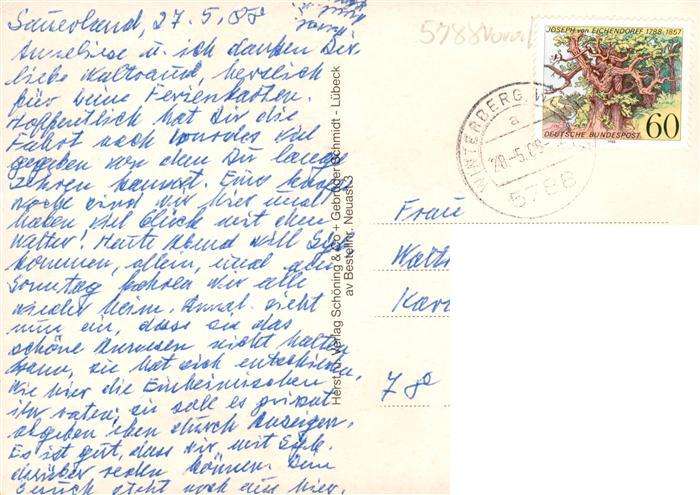 Sauerland, 27.5.88
Anneliese u. ich danken Dir
liebe Waltraud, herzlich
für Deine Ferienkarten.
Hoffentlich hat Dir die
Fahrt nach Lourdes viel
gegeben von dem Du lange
zehren kannst. Eine
Woche sind wir hier und
haben viel Glück mit dem
Wetter! Heute Abend will
kommen, allein, und
Sonntag fahren wir alle
wieder heim. sieht
nun ein, dass sie das
schöne nicht halten
kann, sie hat sich entschieden,
wie hier die Einheimischen
ihr raten, sie soll es privat
abgeben eben durch Anzeigen.
Es ist gut, dass wir mit
darüber reden können. Dein
Besuch steht noch aus hier.
Herst. u. Verlag Schöning & Co + Gebrüder Schmidt - Lübeck
av Bestellnr. Neuast 3
JOSEPH von EICHENDORFF 1788-1857
DEUTSCHE BUNDESPOST 60
WINTERBERG, W
a
28-5.88
5788
Frau
Walt
Kar
78